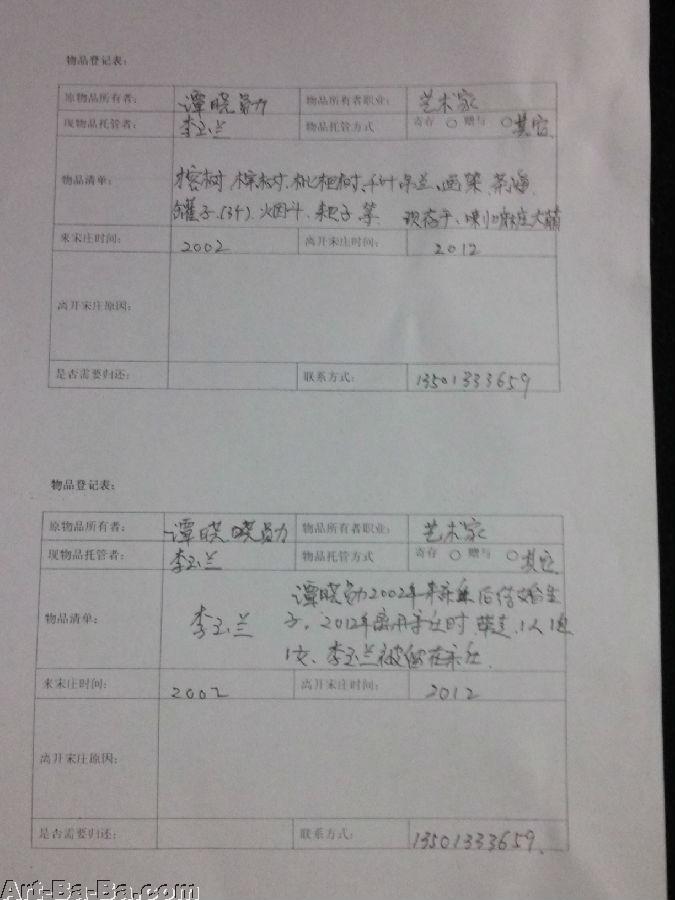 物品登记表:
原物品所有者: 谭晓勋 物品所有者职业: 艺术家
现物品托管者: 李玉兰 物品托管方式 寄存 ○ 赠与 ○其它
物品清单: 榕树、棕树、枇杷树、千叶吊兰、画架、茶海、
罐子(3个)、火因斗、耙子、等 现存于、
来宋庄时间: 2002 离开宋庄时间: 2012
离开宋庄原因:
是否需要归还: 联系方式: 13501333659
物品登记表:
原物品所有者: 谭晓晓勋 物品所有者职业: 艺术家
现物品托管者: 李玉兰 物品托管方式 寄存 ○ 赠与 ○其它
物品清单: 李玉兰 谭晓勋2002年来宋庄后结婚生
子,2012年离开宋庄时 带走,1人1
1女、李玉兰被留在宋庄
来宋庄时间: 2002 离开宋庄时间: 2012
离开宋庄原因:
是否需要归还: 联系方式: 13501333659、
Art-Ba-Ba.com